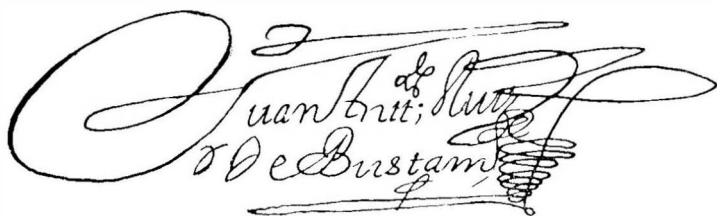 Juan Antt; Ruiz
de Bustam